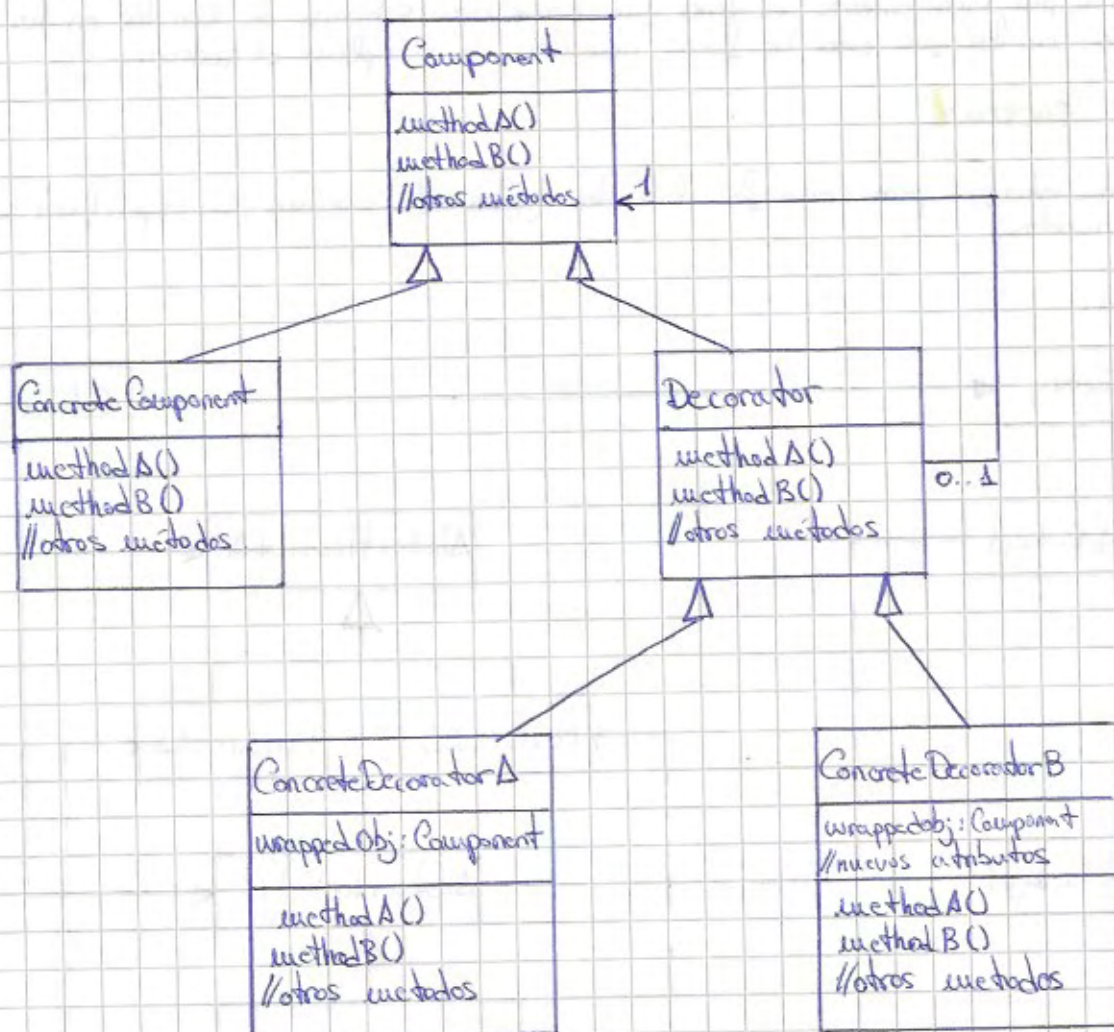 Component
methodA()
methodB()
//otros métodos
1
ConcreteComponent
methodA()
methodB()
//otros métodos
Decorator
methodA()
methodB()
//otros métodos
0..1
ConcreteDecoratorA
wrappedObj: Component
methodA()
methodB()
//otros metodos
ConcreteDecoradorB
wrappedobj: Component
//nuevos atributos
methodA()
methodB()
//otros metodos